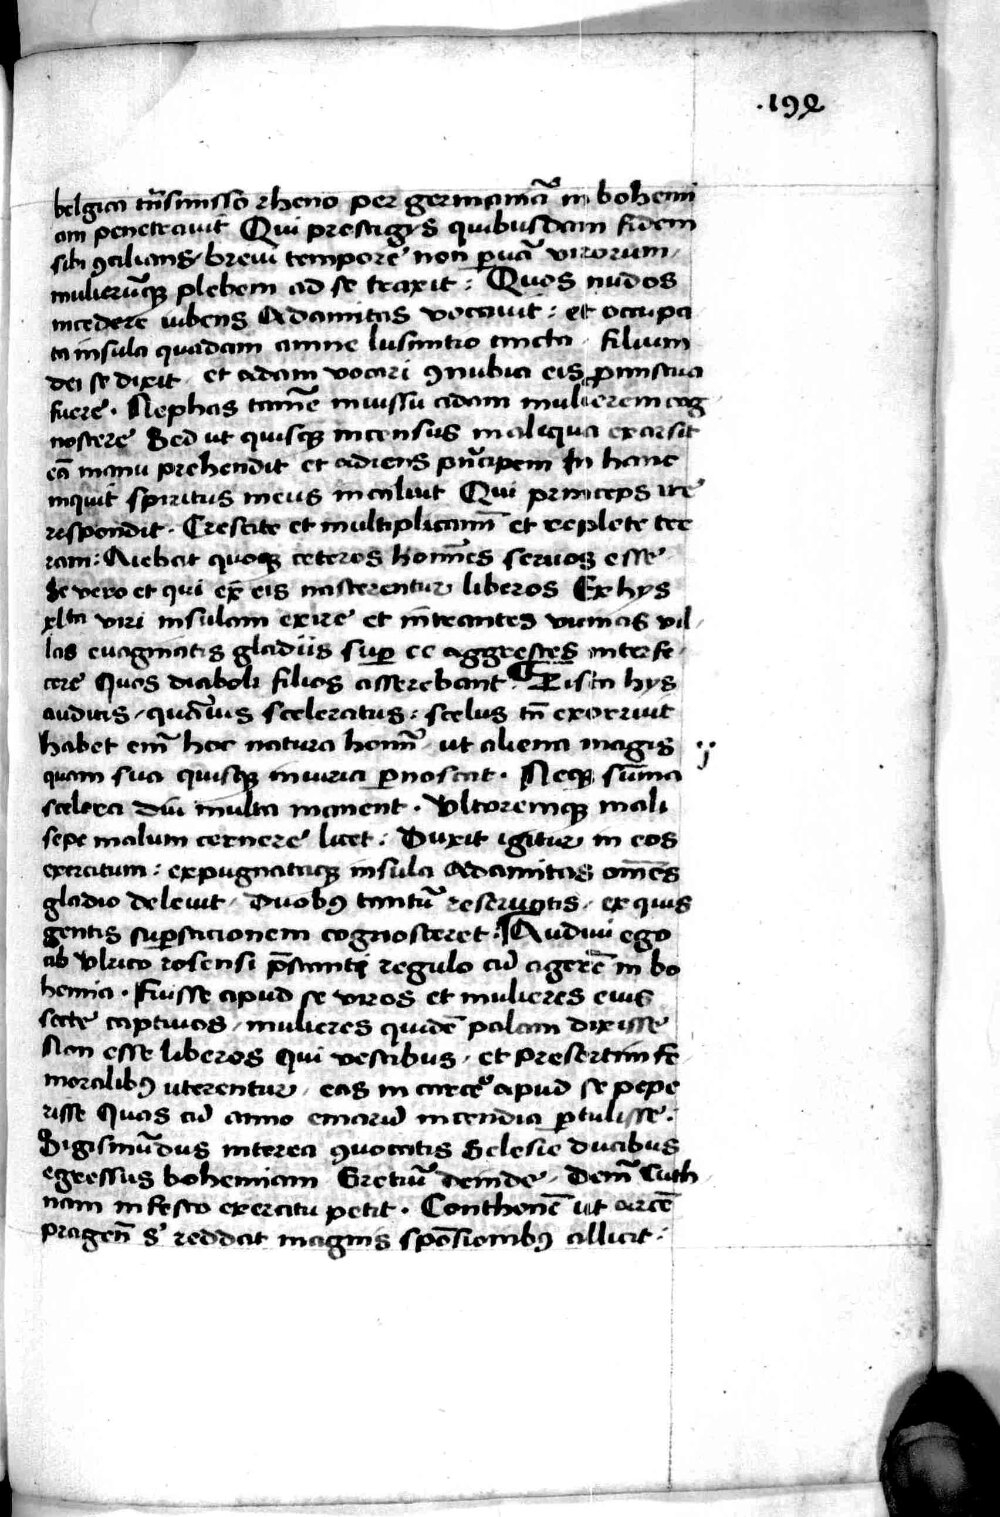 .192
belgica trãsmisso rheno per germaniã in bohemi
am penetrauit Qui prestigijs quibusdam fidem
sibi ꝯcilians / breui tempore non paruã virorum /
mulierũqꝫ plebem ad se traxit : Quos nudos
incedere iubens Adamitas vocauit : et occupa
ta insula quadam amne lusinitio cincta . filium
dei se dixit . et adam vocari ꝯnubia eis promiscua
fuere . Nephas tamẽ iniussu adam mulierem cog
noscere Sed ut quisqꝫ incensus in aliqua exarsit
eã manu prehendit et adiens prĩcipem In hanc
inquit spiritus meus incaluit Qui princeps ire
respondit . Crescite et multiplicamĩ et replete ter
ram : Aiebat quoqꝫ ceteros homĩes seruos esse
se vero et qui ex eis nascerentur liberos Ex hys
xlta viri insulam exire et intrantes vicinas vil /
las euaginatis gladiis suꝑ cc aggrestes interfe /
cere Quos diaboli filios asserebant . ¶ Zisca hys
auditis / quãuis sceleratus : scelus tñ exorruit
habet eni᷑ hoc natura homĩm / ut aliena magis
quam sua quisqꝫ iniuria ꝑnoscat . Neqꝫ sũma
scelera diu multa manent . Vltoremqꝫ mali
sepe malum cernere licet : Duxit igitur in eos
exercitum : expugnataqꝫ insula Adamitas om̃es
gladio deleuit / duobꝰ tantũ reseruatis / ex quis
gentis suꝑsticionem cognosceret : ¶ Audiui ego
ab Vlrico rosensi p̃stanti regulo cũ agerẽ in bo
hemia . Fuisse apud se viros et mulieres eius
secte captiuos / mulieres quidẽ palam dixisse
Non esse liberos qui vestibus / et presertim fe
moralibꝰ uterentur / eas in carcer̃ apud se pepe
risse Quas cũ animo emarũ incendia ꝑtulisse :
Sigismũdus interea ꝯuocatis Slesie ducibus
egressus bohemiam Gretiũ deinde / Dem̃ cuth
nam infesto exercitu petit . Conthenẽ ut arcẽ
pragen̄ s' reddat magnis spõsionibꝰ allicit :